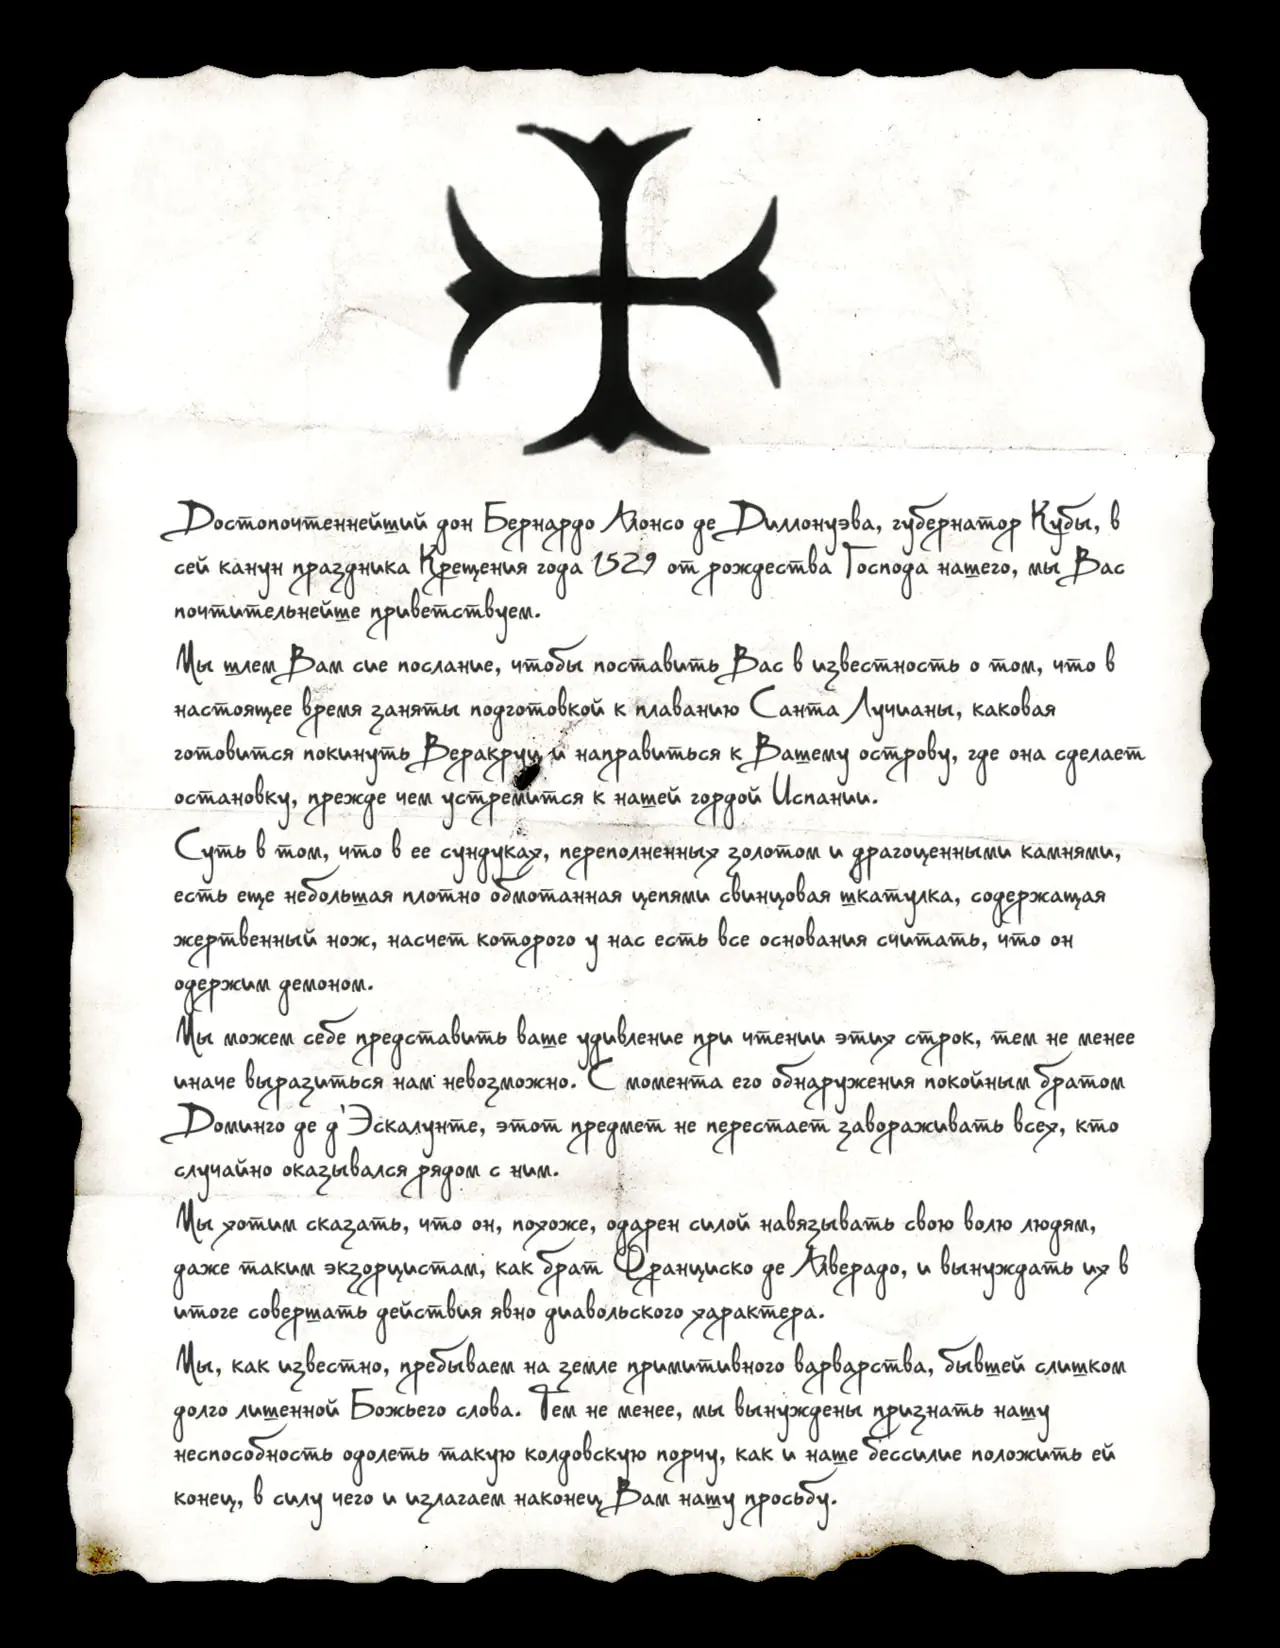 Достопочтеннейший дон Бернардо Алонсо де Диллонуэва, губернатор Кубы, в
сей канун праздника Крещения года 1529 от рождества Господа нашего, мы Вас
почтительнейше приветствуем.
Мы шлем Вам сие послание, чтобы поставить Вас в известность о том, что в
настоящее время заняты подготовкой к плаванию Санта Лучианы, каковая
готовится покинуть Веракруц и направиться к Вашему острову, где она сделает
остановку, прежде чем устремится к нашей гордой Испании.
Суть в том, что в ее сундуках, переполненных золотом и драгоценными камнями,
есть еще небольшая плотно обмотанная цепями свинцовая шкатулка, содержащая
жертвенный нож, насчет которого у нас есть все основания считать, что он
одержим демоном.
Мы можем себе представить ваше удивление при чтении этих строк, тем не менее
иначе выразиться нам невозможно. С момента его обнаружения покойным братом
Доминго де д'Эскалунте, этот предмет не перестает завораживать всех, кто
случайно оказывался рядом с ним.
Мы хотим сказать, что он, похоже, одарен силой навязывать свою волю людям,
даже таким экзорцистам, как брат Франциско де Алверадо, и вынуждать их в
итоге совершать действия явно диавольского характера.
Мы, как известно, пребываем на земле примитивного варварства, бывшей слишком
долго лишенной Божьего слова. Тем не менее, мы вынуждены признать нашу
неспособность одолеть такую колдовскую порчу, как и наше бессилие положить ей
конец, в силу чего и излагаем наконец Вам нашу просьбу.